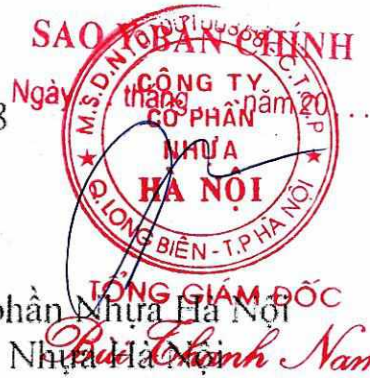 SAO Y BẢN CHÍNH
Ngày tháng năm 20...
CÔNG TY
CỔ PHẦN
NHỰA
HÀ NỘI
Q. LONG BIÊN - T.P HÀ NỘI
TỔNG GIÁM ĐỐC
phần Nhựa Hà Nội
Nhựa Hà Nội
Bùi Thanh Nam